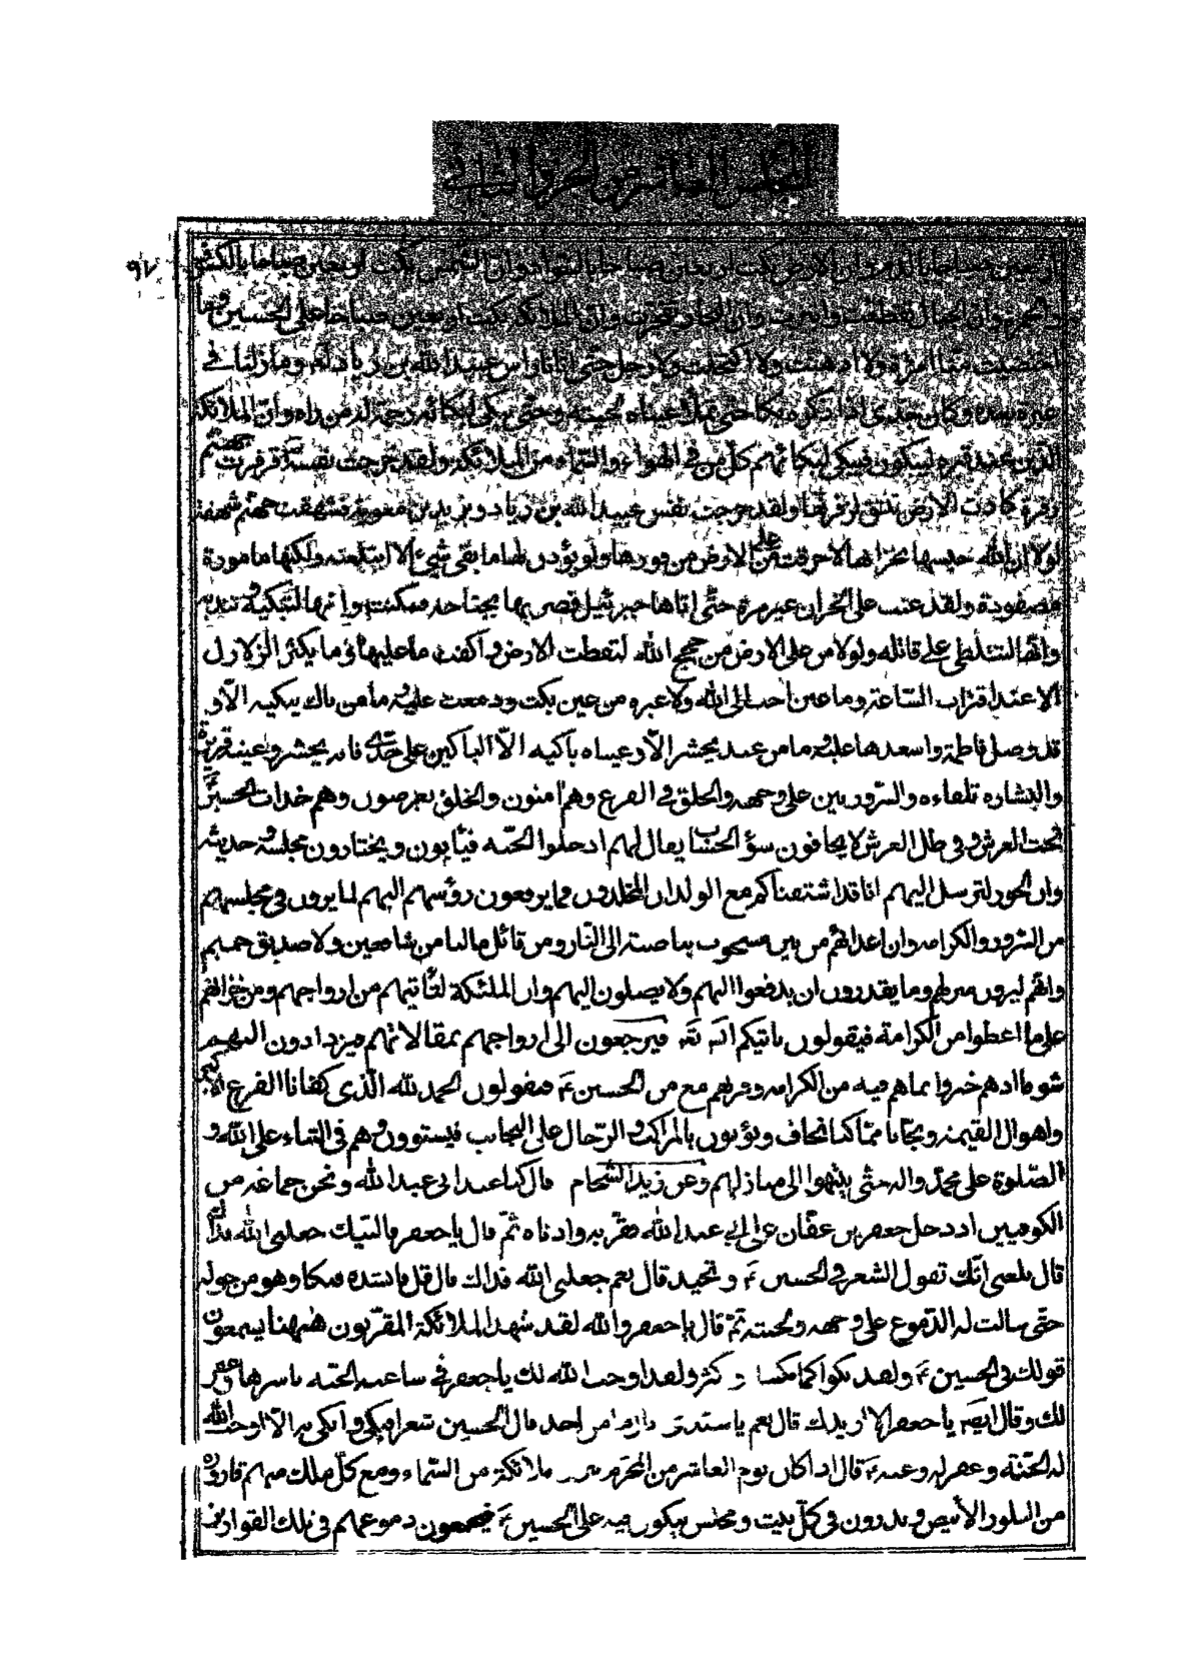 المجلس العاشر من الجزو الثاني
٩٧
اربعين صباحا بالدم وان الارض بكت اربعين صباحا بالسواد وان الشمس بكت اربعين صباحا بالكسوف
والحمرة وان الجبال تقطعت وانتثرت وان البحار تفجرت وان الملائكة بكت اربعين صباحا على الحسين وما
اختضبت منا امرأة ولا ادهنت ولا اكتحلت ولا رجلت حتى اتانا راس عبيد الله بن زياد وما زلنا في
عبرة بعده وكان جدي اذا ذكره بكا حتى تملأ عيناه لحيته وحتى يبكي لبكائه رحمة له من راه وان الملائكة
الذين عند قبره ليبكون فيبكي لبكائهم كل من في الهواء والسماء من الملائكة ولقد خرجت نفسه فزفرت جهنم
زفرة كادت الارض تنشق لزفرتها ولقد خرجت نفس عبيد الله بن زياد ويزيد بن معوية فشهقت جهنم شهقة
لولا ان الله حبسها بخزانها لاحرقت من على الارض من فورها ولو يؤذن لها ما بقي شيء الا ابتلعته ولكنها مامورة
مصفودة ولقد عتت على الخزان غير مرة حتى اتاها جبرئيل فضربها بجناحه فسكنت وانها لتبكيه وتندبه
وانها لتتلظى على قاتله ولولا من على الارض من حجج الله لنقطت الارض واكفت ما عليها وما يكثر الزلازل
الا عند اقتراب الساعة وما عين احب الى الله ولا عبرة من عين بكت ودمعت عليه وما من باك يبكيه الا و
قد وصل فاطمة واسعدها عليه وما من عبد يحشر الا وعيناه باكية الا الباكين على جدي فانه يحشر وعينه قريرة
والبشارة تلقاءه والسرور بين على وجهه والخلق في الفزع وهم آمنون والخلق يعرضون وهم خداث الحسين
تحت العرش وفي ظل العرش لا يخافون سؤ الحساب يقال لهم ادخلوا الجنة فيأبون ويختارون مجلسه وحديثه
وان الحور لترسل اليهم انا قد اشتقناكم مع الولدان المخلدون فما يرفعون رؤسهم اليهم لما يرون في مجلسهم
من السرور والكرامة وان اعدائهم من بين مسحوب بناصته الى النار ومن قائل ما لنا من شافعين ولا صديق حميم
وانهم ليرون منزلهم وما يقدرون ان يدفعوا اليهم ولا يصلون اليهم وان الملئكة لتأتيهم من ازواجهم ومن خزانهم
على ما اعطوا من الكرامة فيقولون ناتيكم انشه تع فيرجعون الى ازواجهم بمقالاتهم فيزدادون اليهم
شوقا اذهم خبروا بما هم فيه من الكرامة وقربهم مع من الحسين ع فيقولون الحمد لله الذي كفانا الفزع الاكبر
واهوال القيمة ونجانا مما كنا نخاف ويؤتون بالمراكب والرحال على النجايب فيستوون وهم في الثناء على الله و
الصلوة على محمد واله حتى ينتهوا الى منازلهم وعن زيد الشحام قال كنا عند ابي عبد الله ونحن جماعة من
الكوفيين اذ دخل جعفر بن عفان على ابي عبد الله فقربه وادناه ثم قال يا جعفر قال لبيك جعلني الله فداك
قال بلغني انك تقول الشعر في الحسين ع وتجيد قال نعم جعلني الله فداك قال قل فانشده فبكا وهو من حوله
حتى سالت له الدموع على وجهه ولحيته ثم قال يا جعفر والله لقد شهد الملائكة المقربون ههنا ليسمعون
قولك في الحسين ع ولقد بكوا كما بكينا و كثر ولقد اوجب الله لك يا جعفر في ساعته الجنة باسرها وغفر
لك وقال ايضه يا جعفر الا ازيدك قال نعم يا سيدي قال ما من احد قال الحسين شعرا فبكى وابكى به الا اوجب الله
له الجنة وغفر له وعنه ع قال اذا كان يوم العاشر من المحرم ملائكة من السماء ومع كل ملك منهم قارورة
من البلور الأبيض ويدورون في كل بيت ومجلس يبكون فيه على الحسين ع فيجمعون دموعهم في تلك القوارير